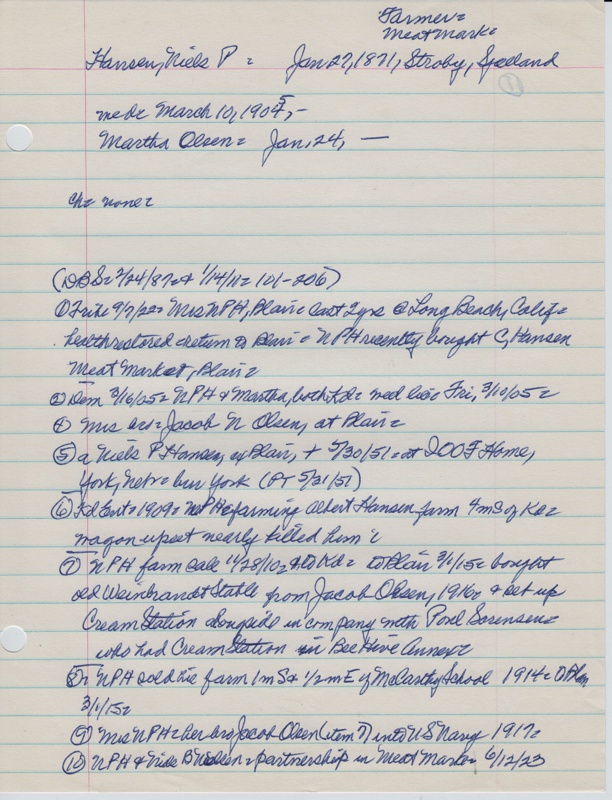 Farmer=
Meat Mark=
Hansen, Niels P = Jan 27, 1871, Stroby, Sjelland
11
med= March 10, 1905, -
Martha Olsen= Jan, 24, —
ch= none=
(1) DBS= 2/24/87= & 1/14/11= 101-206)
① Trib= 9/7/22= Mrs NPH, Blair= last 2 yrs @ Long Beach, Calif=
health restored return to Blair = NPH recently bought C, Hansen
Meat Market, Blair=
② Dem 3/16/05= NPH & Martha, both Kd= med lic= Fri, 3/10/05=
④ Mrs bro= Jacob N Olsen, at Blair=
⑤ a Niels P Hansen, ex Blair, + 5/30/51= at IOOF Home,
York, Nebr= bur York (PT 5/31/51)
⑥ Kd Ent= 1909= NPH= farming Albert Hansen farm 4 mS of Kd=
wagon upset nearly killed him =
⑦ NPH farm sale 11/28/10= to Kd= to Blair 3/1/15= bought
old Weinbrandt Stable from Jacob Olsen, 1916= & set up
Cream Station alongside in company with Poul Sorensen=
who had Cream Station in Bee Hive Annex=
⑧ NPH sold his farm 1 m S & 1/2 m E of McCarthy School 1914= to Blair
3/1/15=
⑨ Mrs NPH= her bro Jacob Olsen (item 7) into US Navy 1917=
⑩ NPH & Niels B Nielsen= partnership in Meat Mark= 6/12/23